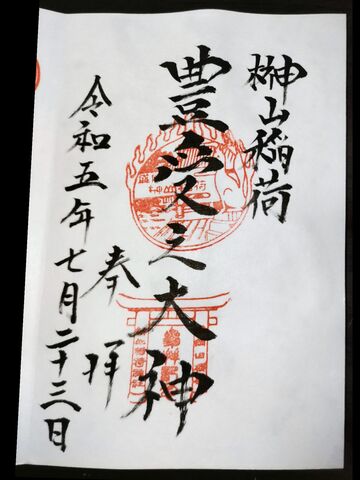 榊山稲荷
豊受之大神
奉拝
令和五年七月二十三日